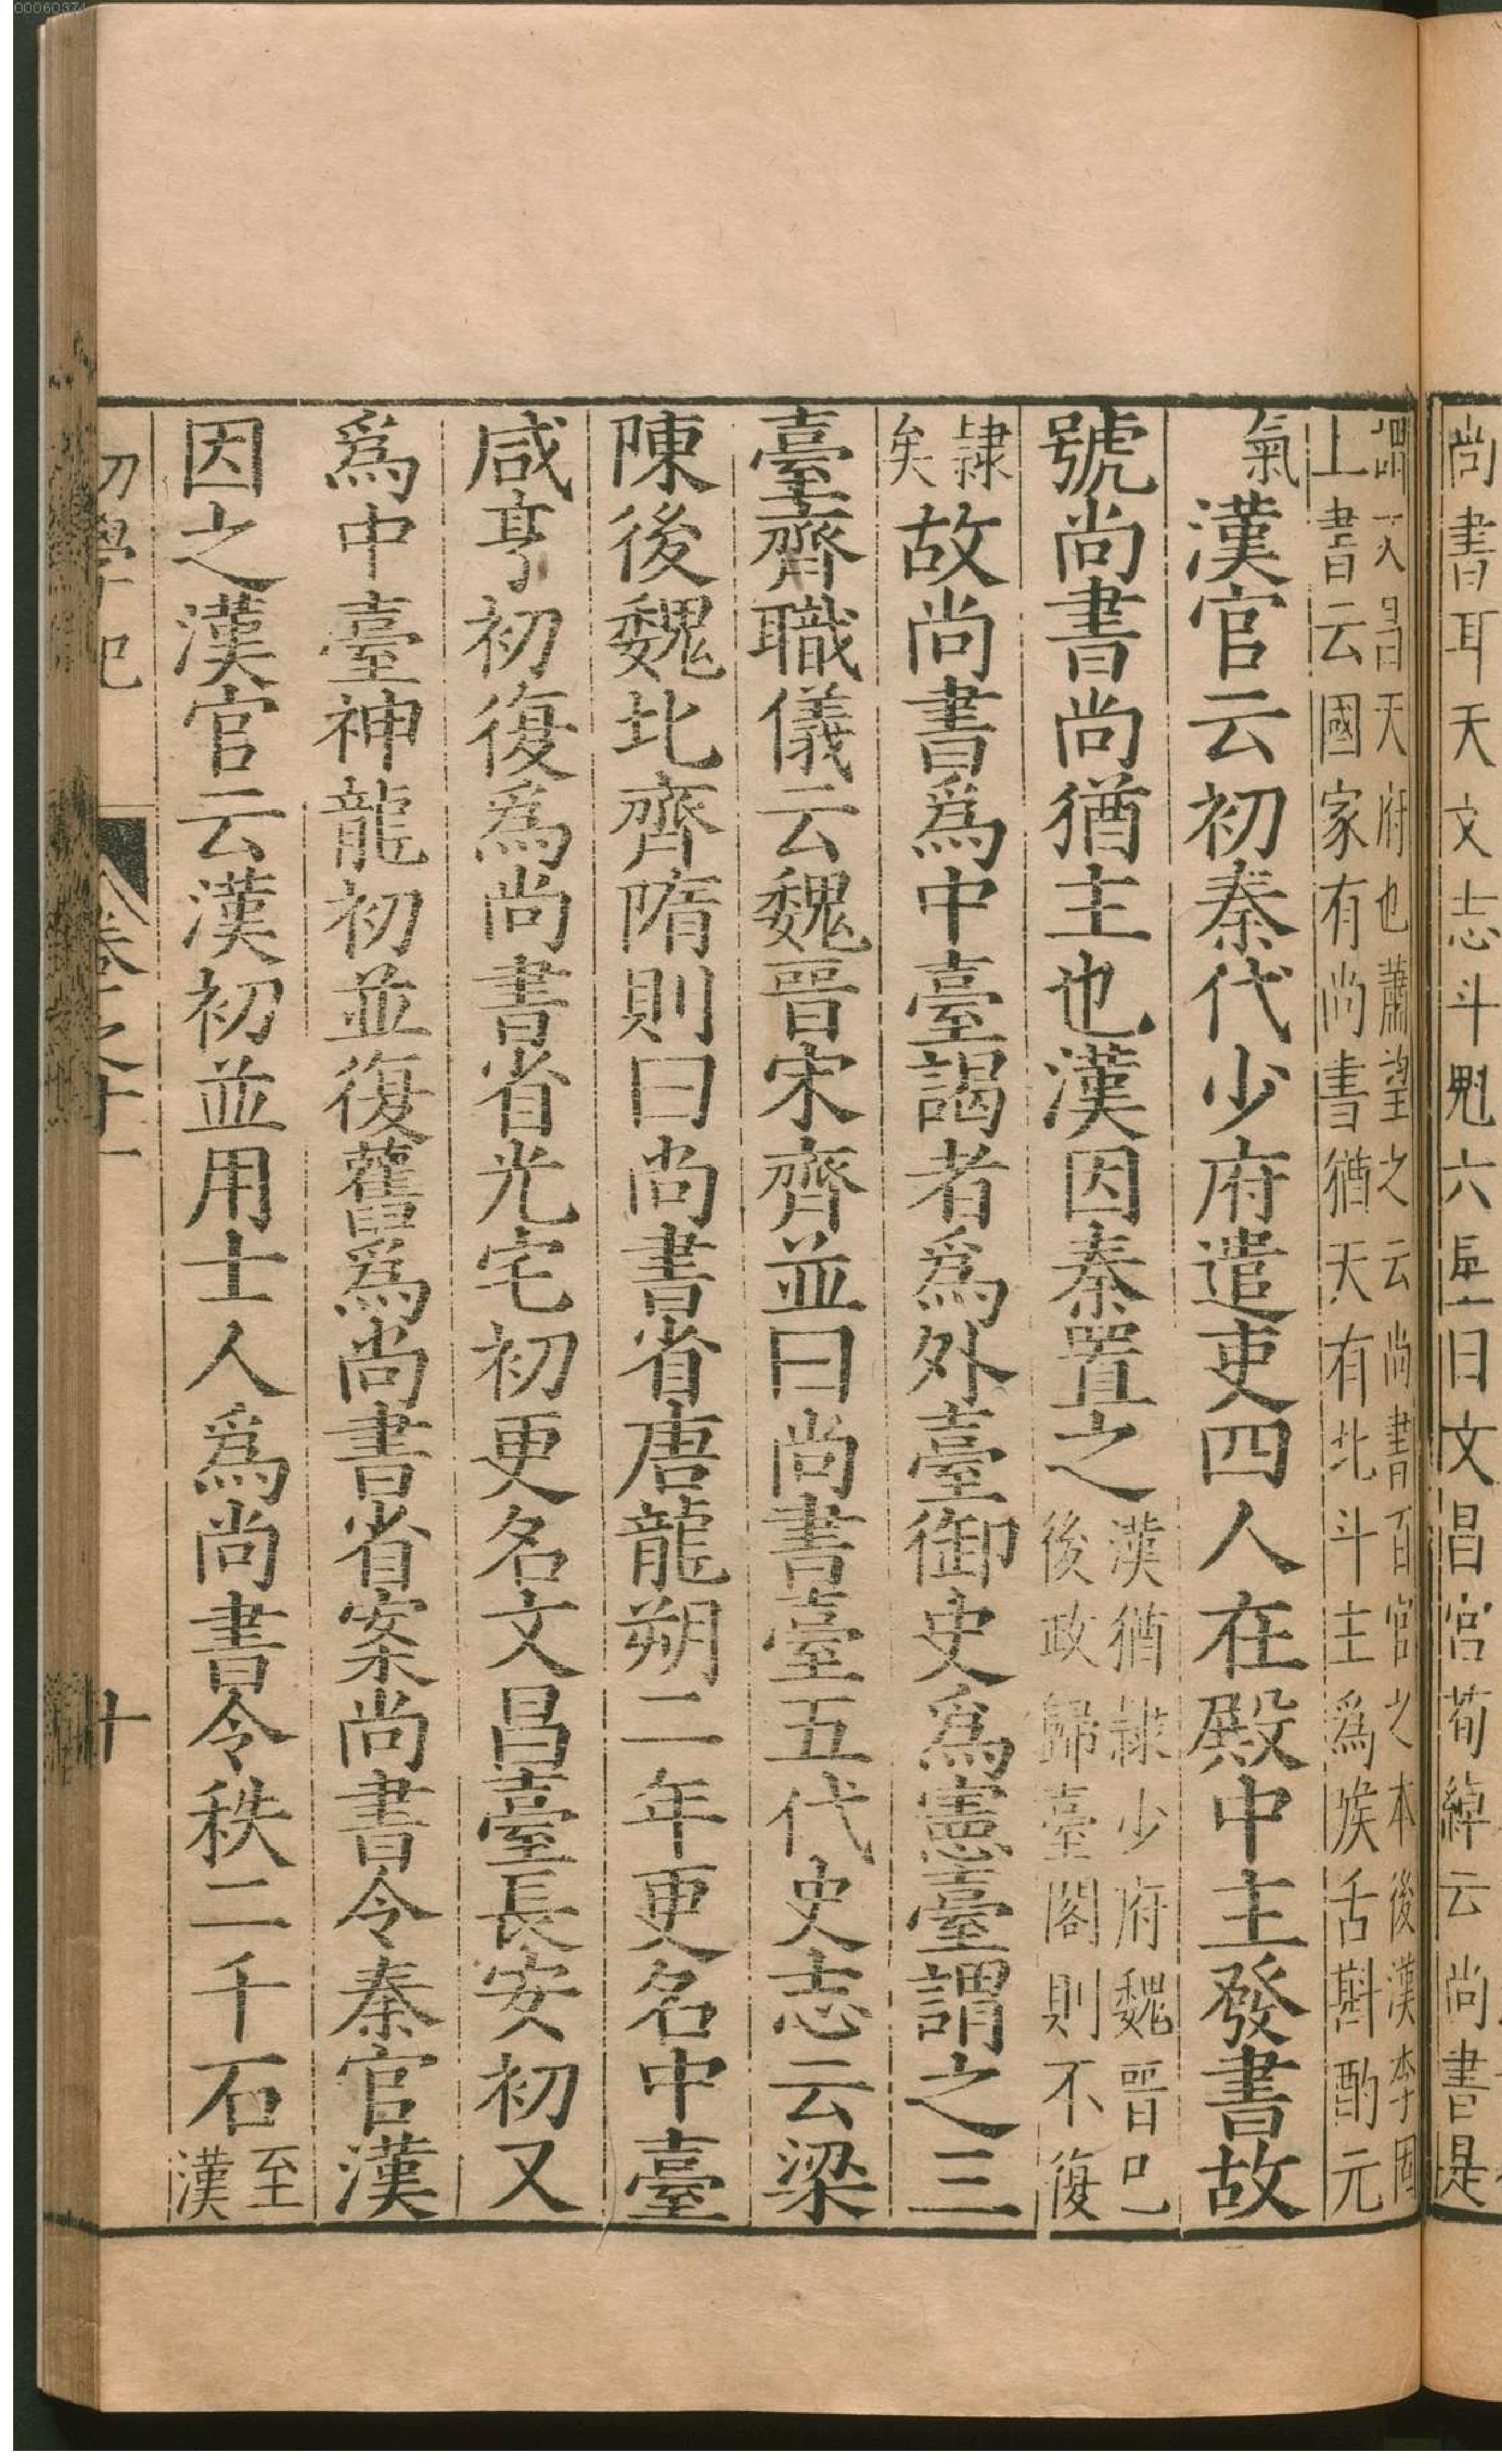 尚書耳天文志斗魁六星曰文昌宮荀綽云尚書是
謂文昌天府也蕭望之云尚書百官之本後漢李固
上書云國家有尚書猶天有北斗主爲喉舌斟酌元
氣漢官云初秦代少府遣吏四人在殿中主發書故
號尚書尚猶主也漢因秦置之漢猶隷少府魏晉已
後政歸臺閣則不復
隷
矣故尚書爲中臺謁者爲外臺御史爲憲臺謂之三
臺齊職儀云魏晉宋齊並曰尚書臺五代史志云梁
陳後魏北齊隋則曰尚書省唐龍朔二年更名中臺
咸亨初復爲尚書省光宅初更名文昌臺長安初又
爲中臺神龍初並復舊爲尚書省案尚書令秦官漢
因之漢官云漢初並用士人爲尚書令秩二千石至
漢
初學記
卷之十一
十
00060374